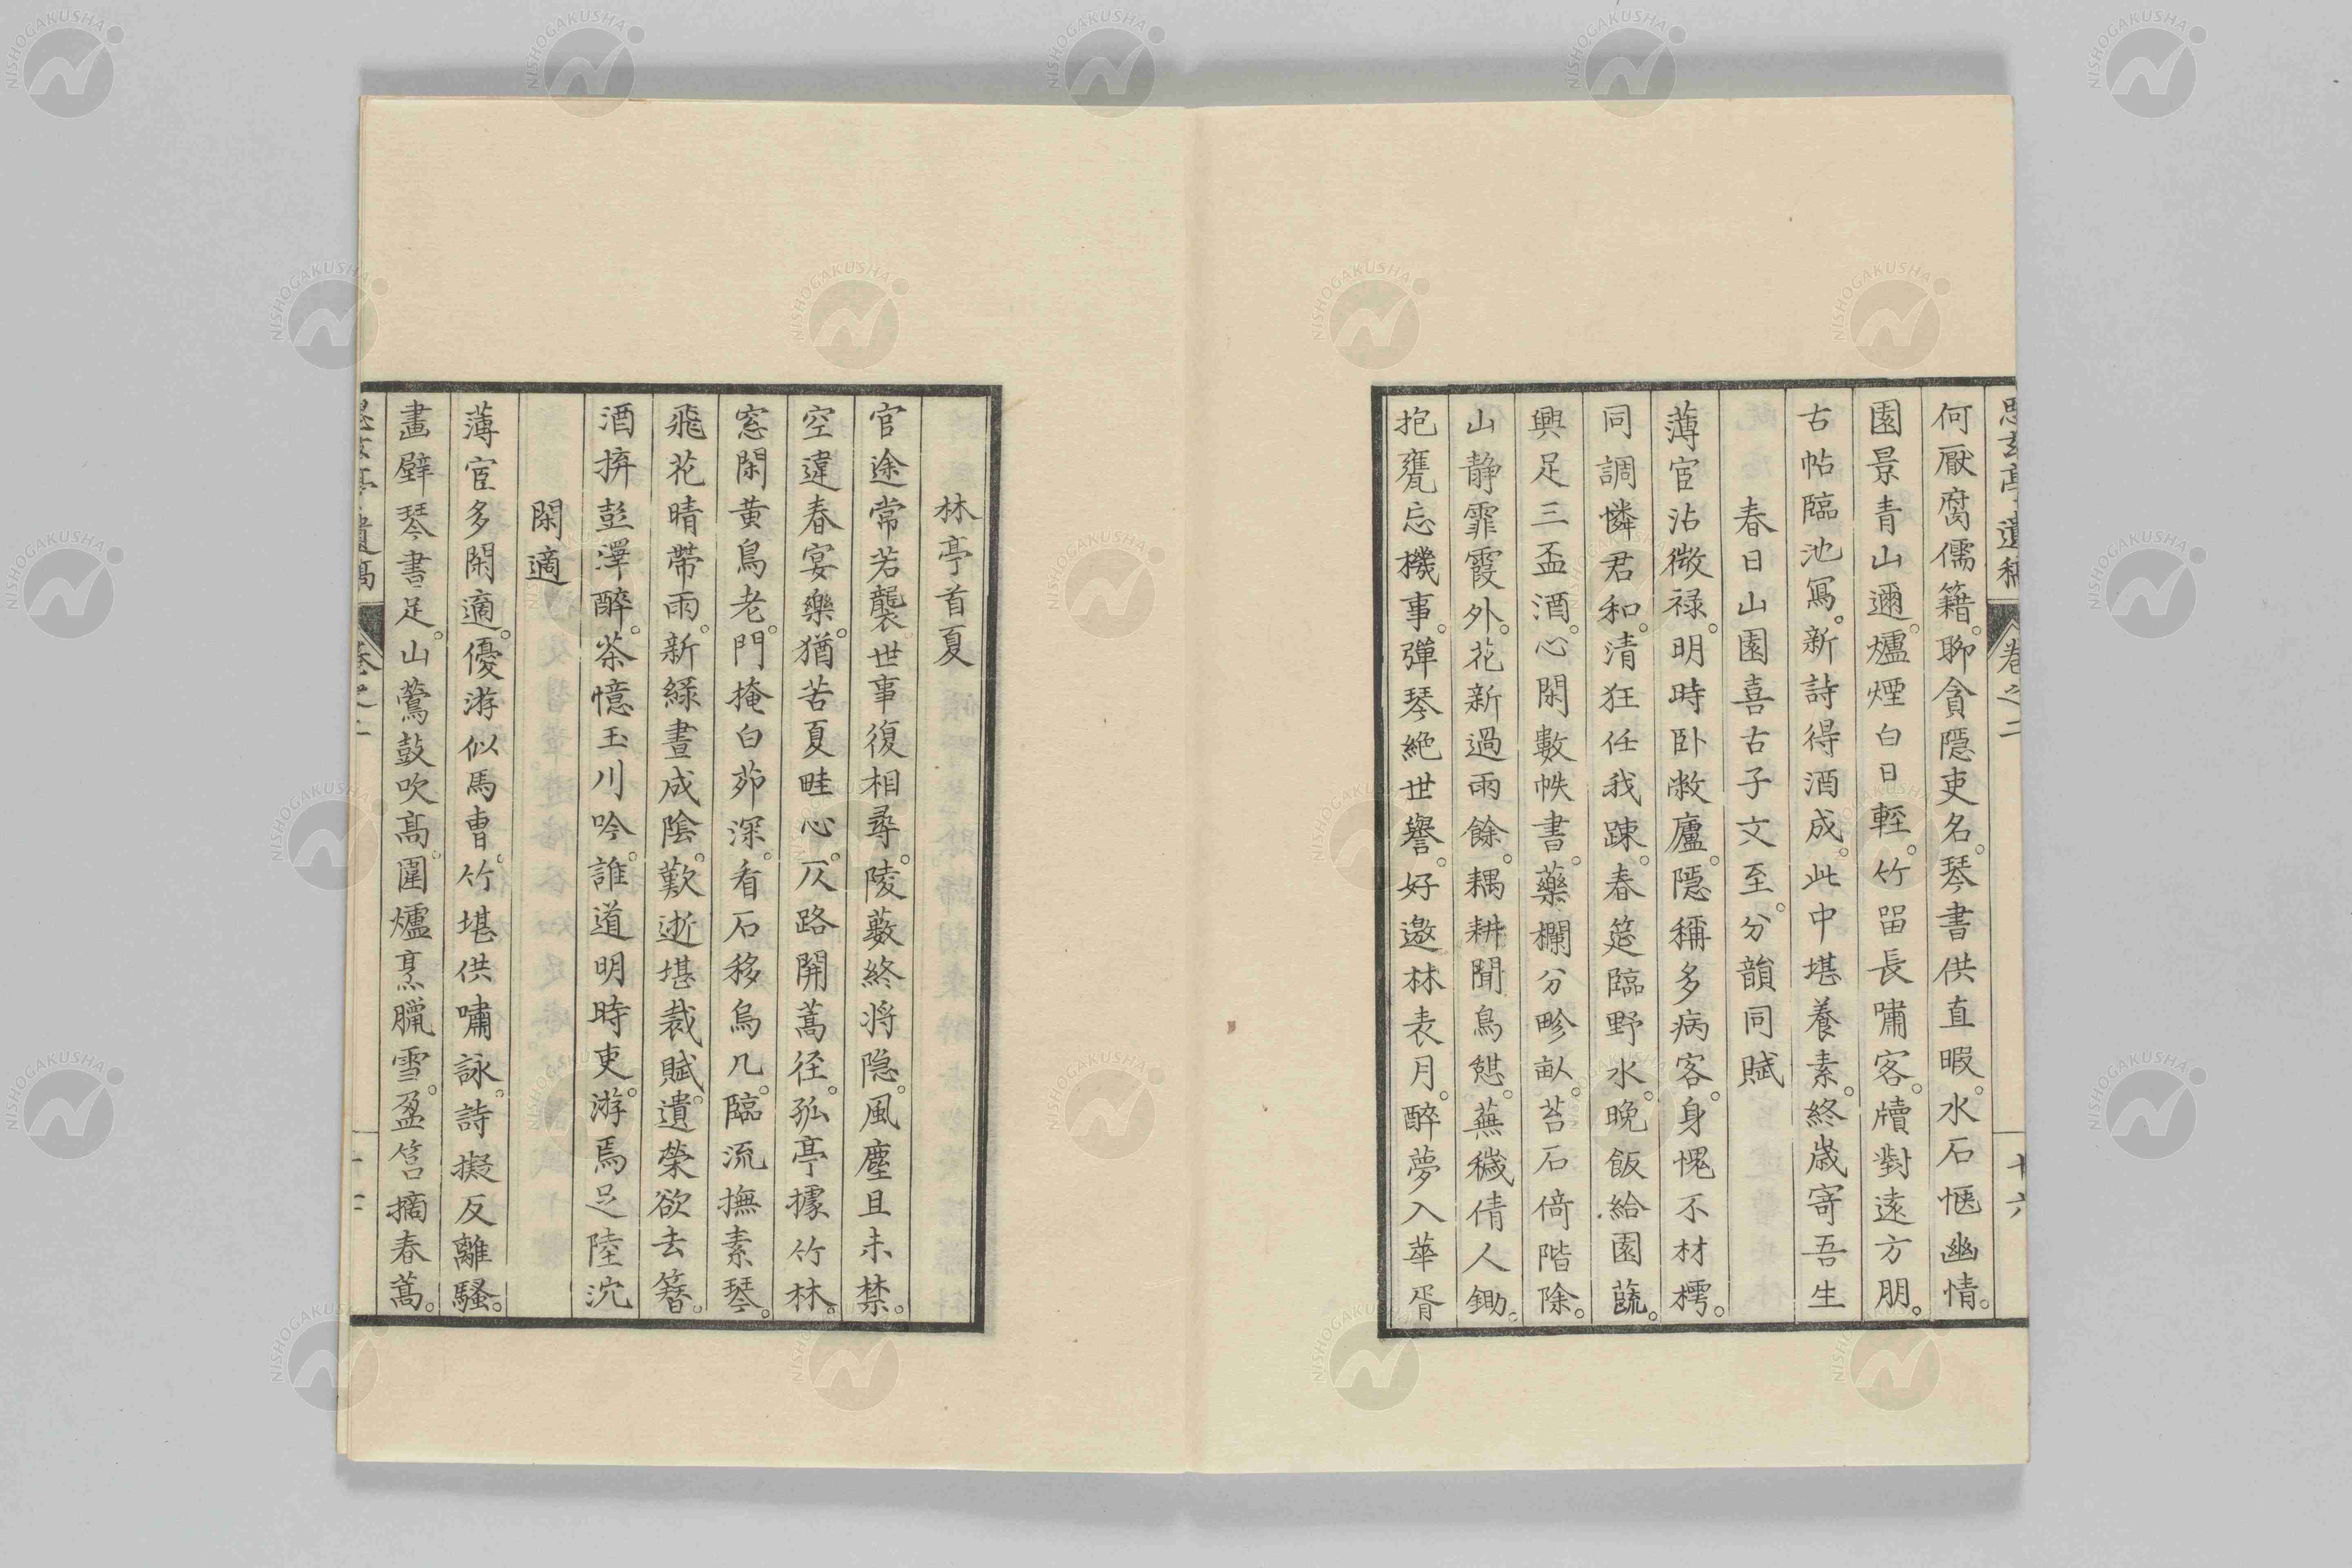 思玄亭遺稿 卷之二 十六
何厭腐儒籍。聊貪隱吏名。琴書供直暇。水石愜幽情。
園景青山邇。爐煙白日輕。竹留長嘯客。牘對遠方朋。
古帖臨池寫。新詩得酒成。此中堪養素。終歳寄吾生
春日山園喜古子文至。分韻同賦
薄宦沾微祿。明時卧敝廬。隱稱多病客。身愧不材樗。
同調憐君和。清狂任我踈。春筵臨野水。晚飯給園蔬。
興足三盃酒。心閑數帙書。藥欄分畛畝。苔石倚階除。
山静霏霞外。花新過雨餘。耦耕聞鳥㦤。蕪穢倩人鋤。
抱甕忘機事。彈琴絶世譽。好邀林表月。醉夢入華胥
林亭首夏
官途常若襲世事復相尋。陵藪終將隐。風塵且未禁。
空違春宴樂。猶苦夏畦心。仄路開蒿径。孤亭據竹林。
窓閑黄鳥老。門掩白茆深。看石移烏几。臨流撫素琴。
飛花晴帶雨。新緑晝成陰。歎逝堪裁賦。遺榮欲去簪。
酒擠彭澤醉。茶憶玉川吟。誰道明時吏。游焉足陸沉
閑適
薄宦多閑適。優游似馬曹。竹堪供嘯詠。詩擬反離騷。
畫壁琴書足。山鶯鼓吹高。圍爐烹臘雪。盈筥摘春蒿。